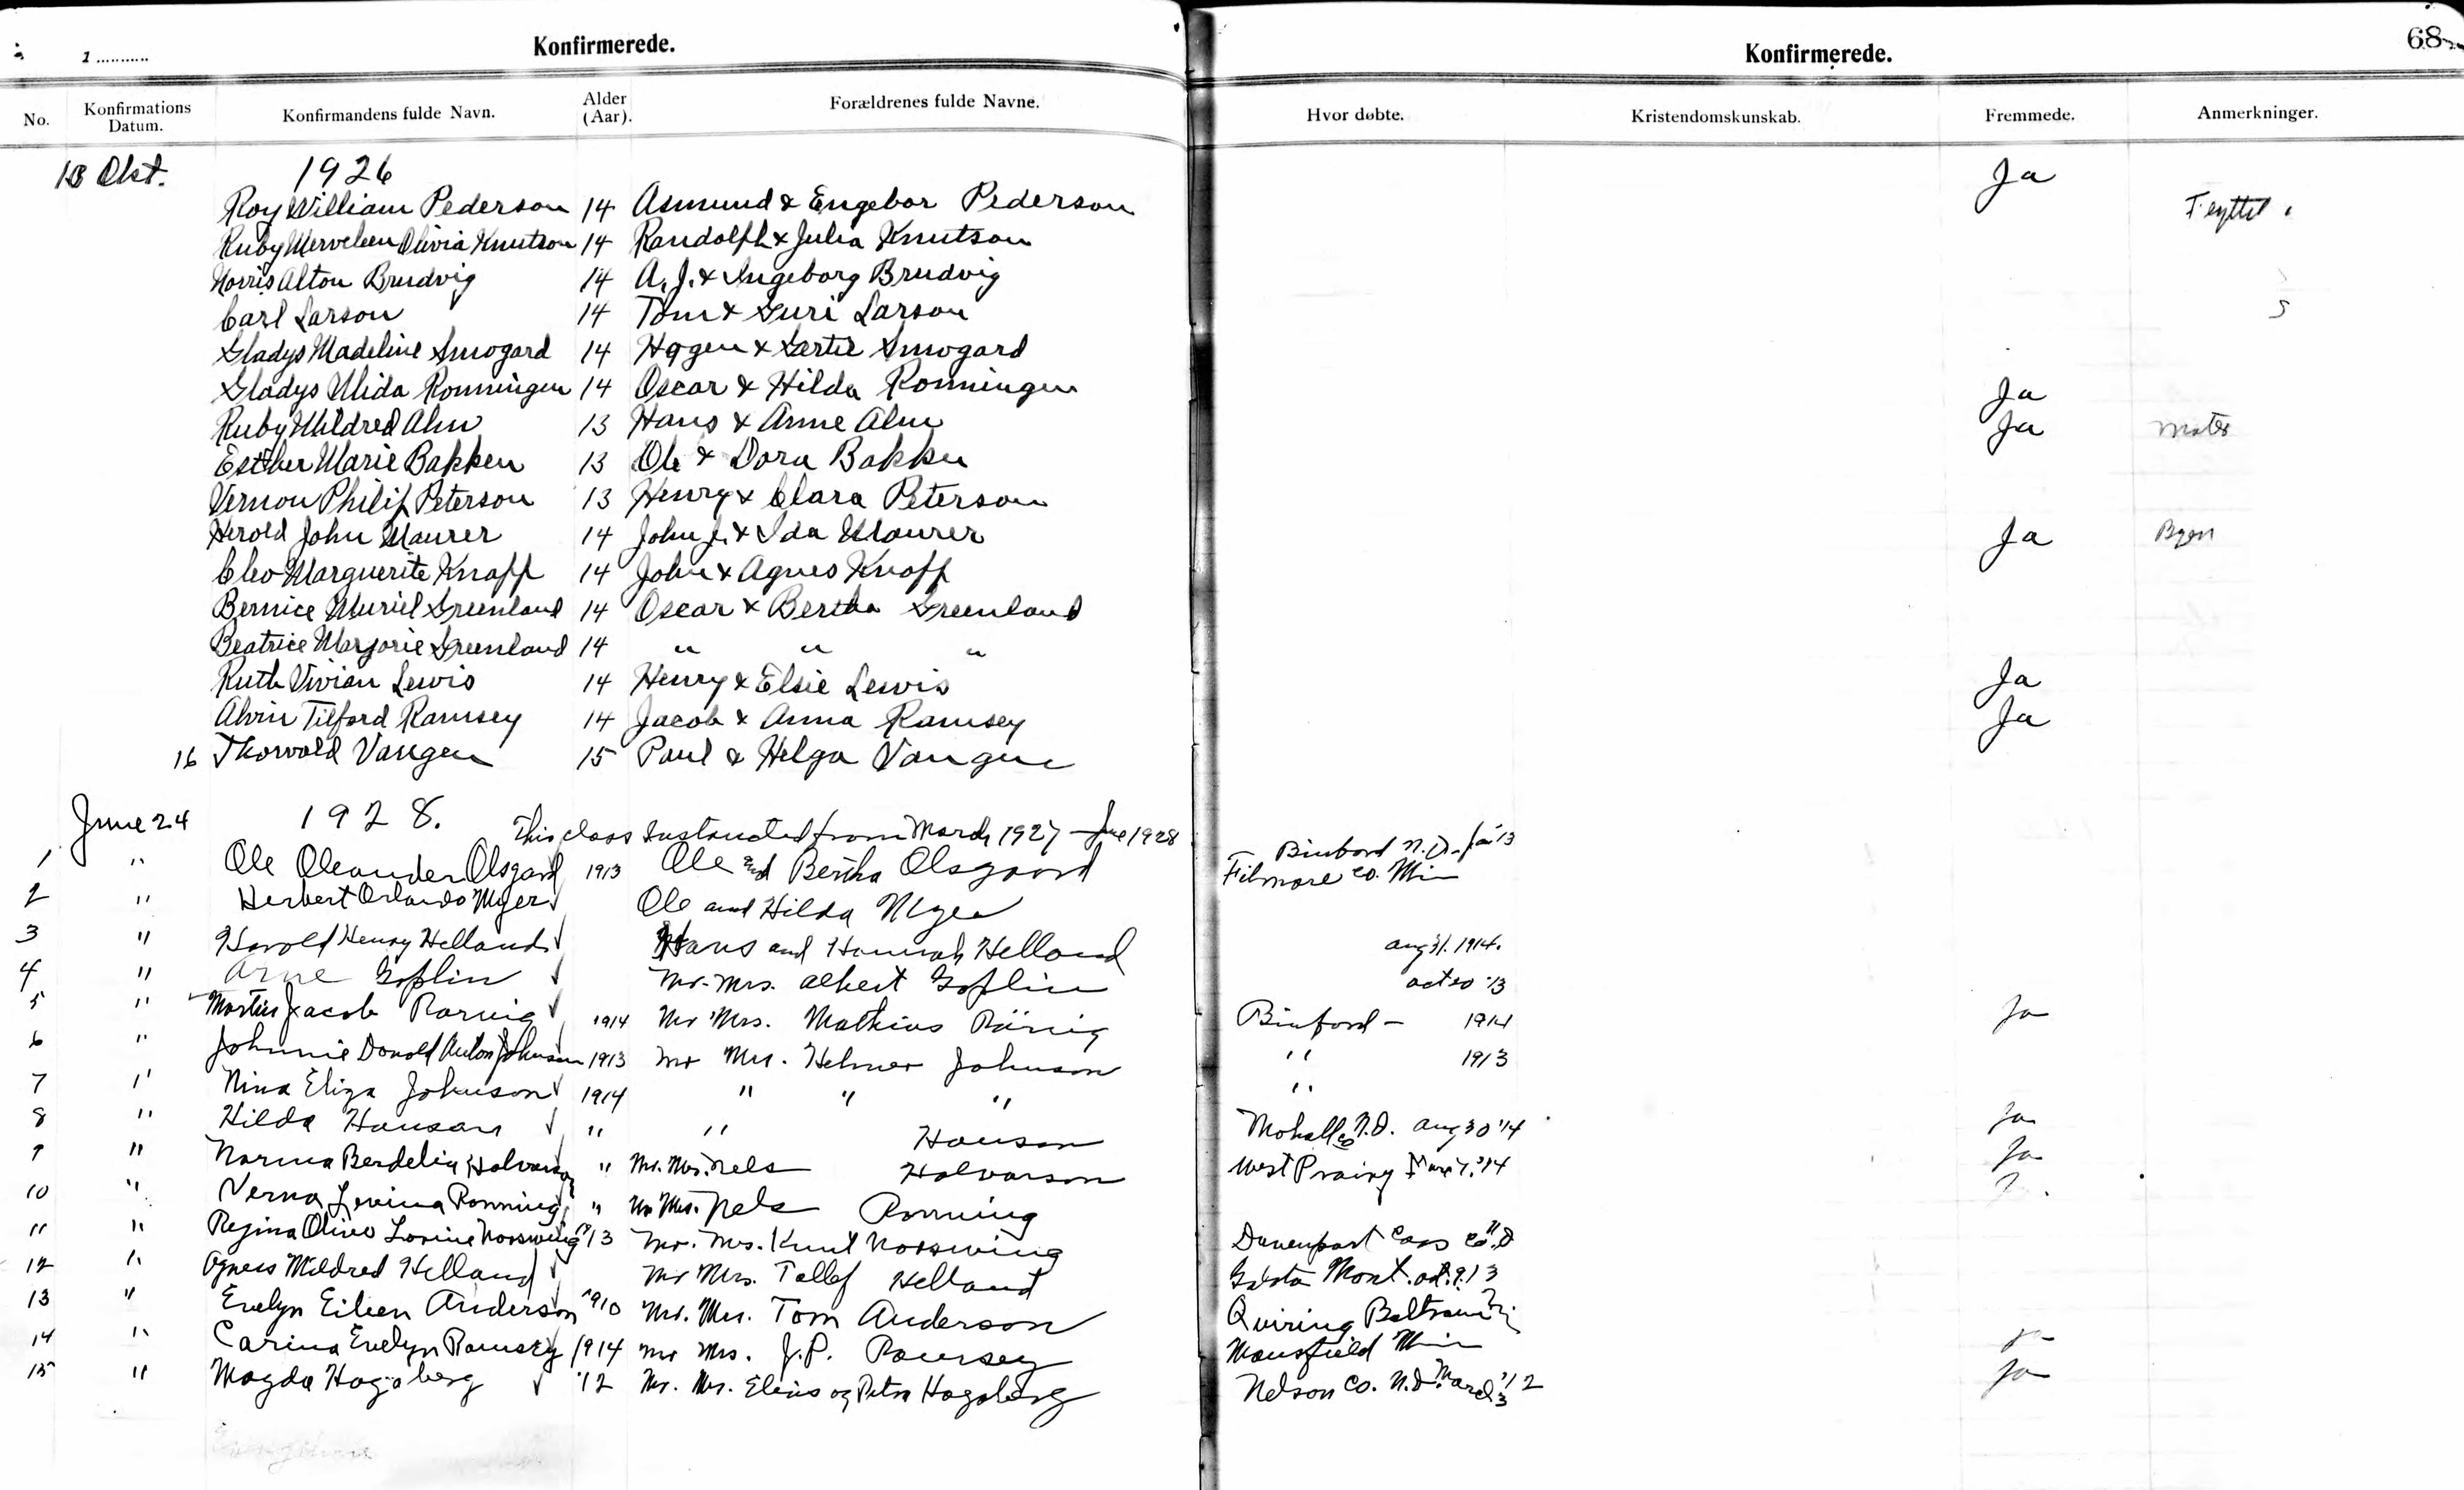 Konfirmerede.
1 ..........
No. Konfirmations Datum. Konfirmandens fulde Navn. Alder (Aar). Forældrenes fulde Navne.
Okt. 1926
Roy William Pederson 14 Asmund & Engebor Pederson
Ruby Olivia Knutson 14 Randolph & Julia Knutson
Norris Alton Brudvig 14 A. J. & Ingeborg Brudvig
Carl Larson 14 Tom & Guri Larson
Gladys Madeline Smogard 14 Hagen & Smogard
Gladys Ronningen 14 Oscar & Hilda Ronningen
Ruby Mildred Alm 13 Hans & Anne Alm
Esther Marie Bakken 13 Ole & Dora Bakken
Vernon Philip Peterson 13 Henry & Clara Peterson
Herold John Maurer 14 John J. & Ida Maurer
Cleo Marguerite Knapp 14 John & Agnes Knopp
Bernice Muriel Greenland 14 Oscar & Bertha Greenland
Beatrice Marjorie Greenland 14 " " "
Ruth Vivian Lewis 14 Henry & Elsie Lewis
Alvin Tilford Ramsey 14 Jacob & Anna Ramsey
16 Thorvald Vangen 15 Paul & Helga Vangen
June 24 1928. This class Instructed from March 1927 - June 1928
1 " Ole Oleander Olsgard 1913 Ole and Bertha Olsgaard
2 " Herbert Orlando Myer Ole and Hilda Myer
3 " Harold Henry Helland Hans and Hannah Helland
4 " Arne Goplin Mr. Mrs. Albert Goplin
5 " Martin Jacob 1914 Mr Mrs. Mathias
6 " Johnnie Donald Anton Johnson 1913 Mr Mrs. Helmer Johnson
7 " Nina Eliza Johnson 1914 " " "
8 " Hilda Hanson " " Hanson
9 " Norma Berdelia Halvorson " Mr. Mrs. Nels Halvorson
10 " Verna Levina Ronning " Mr Mrs. Nels Ronning
11 " Regina Olive Norswing '13 Mr. Mrs. Knut Norswing
12 " Agnes Mildred Helland Mr Mrs. Tollef Helland
13 " Evelyn Eileen Anderson 1910 Mr. Mrs. Tom Anderson
14 " Carina Evelyn Ramsey 1914 Mr Mrs. J. P. Ramsey
15 " Magda Hagaberg '12 Mr. Mrs. Elenis og Petra Hagaberg
Konfirmerede.
68
Hvor døbte. Kristendomskunskab. Fremmede. Anmerkninger.
Ja
Flyttet
Ja
Ja
Ja Byen
Ja
Ja
Binford N.D. Jan '13
Filmore Co. Min
Aug 31. 1914.
Oct 20 '13
Binford - 1914 Ja
" 1913
"
Mohall N.D. Aug 30 '14 Ja
West Prairy '14 Ja
Davenport Cass Co. N.D
Mont. Oct. 9. 13
Quiring Beltrami
Mansfield Min
Nelson Co. N.D. March '12 Ja